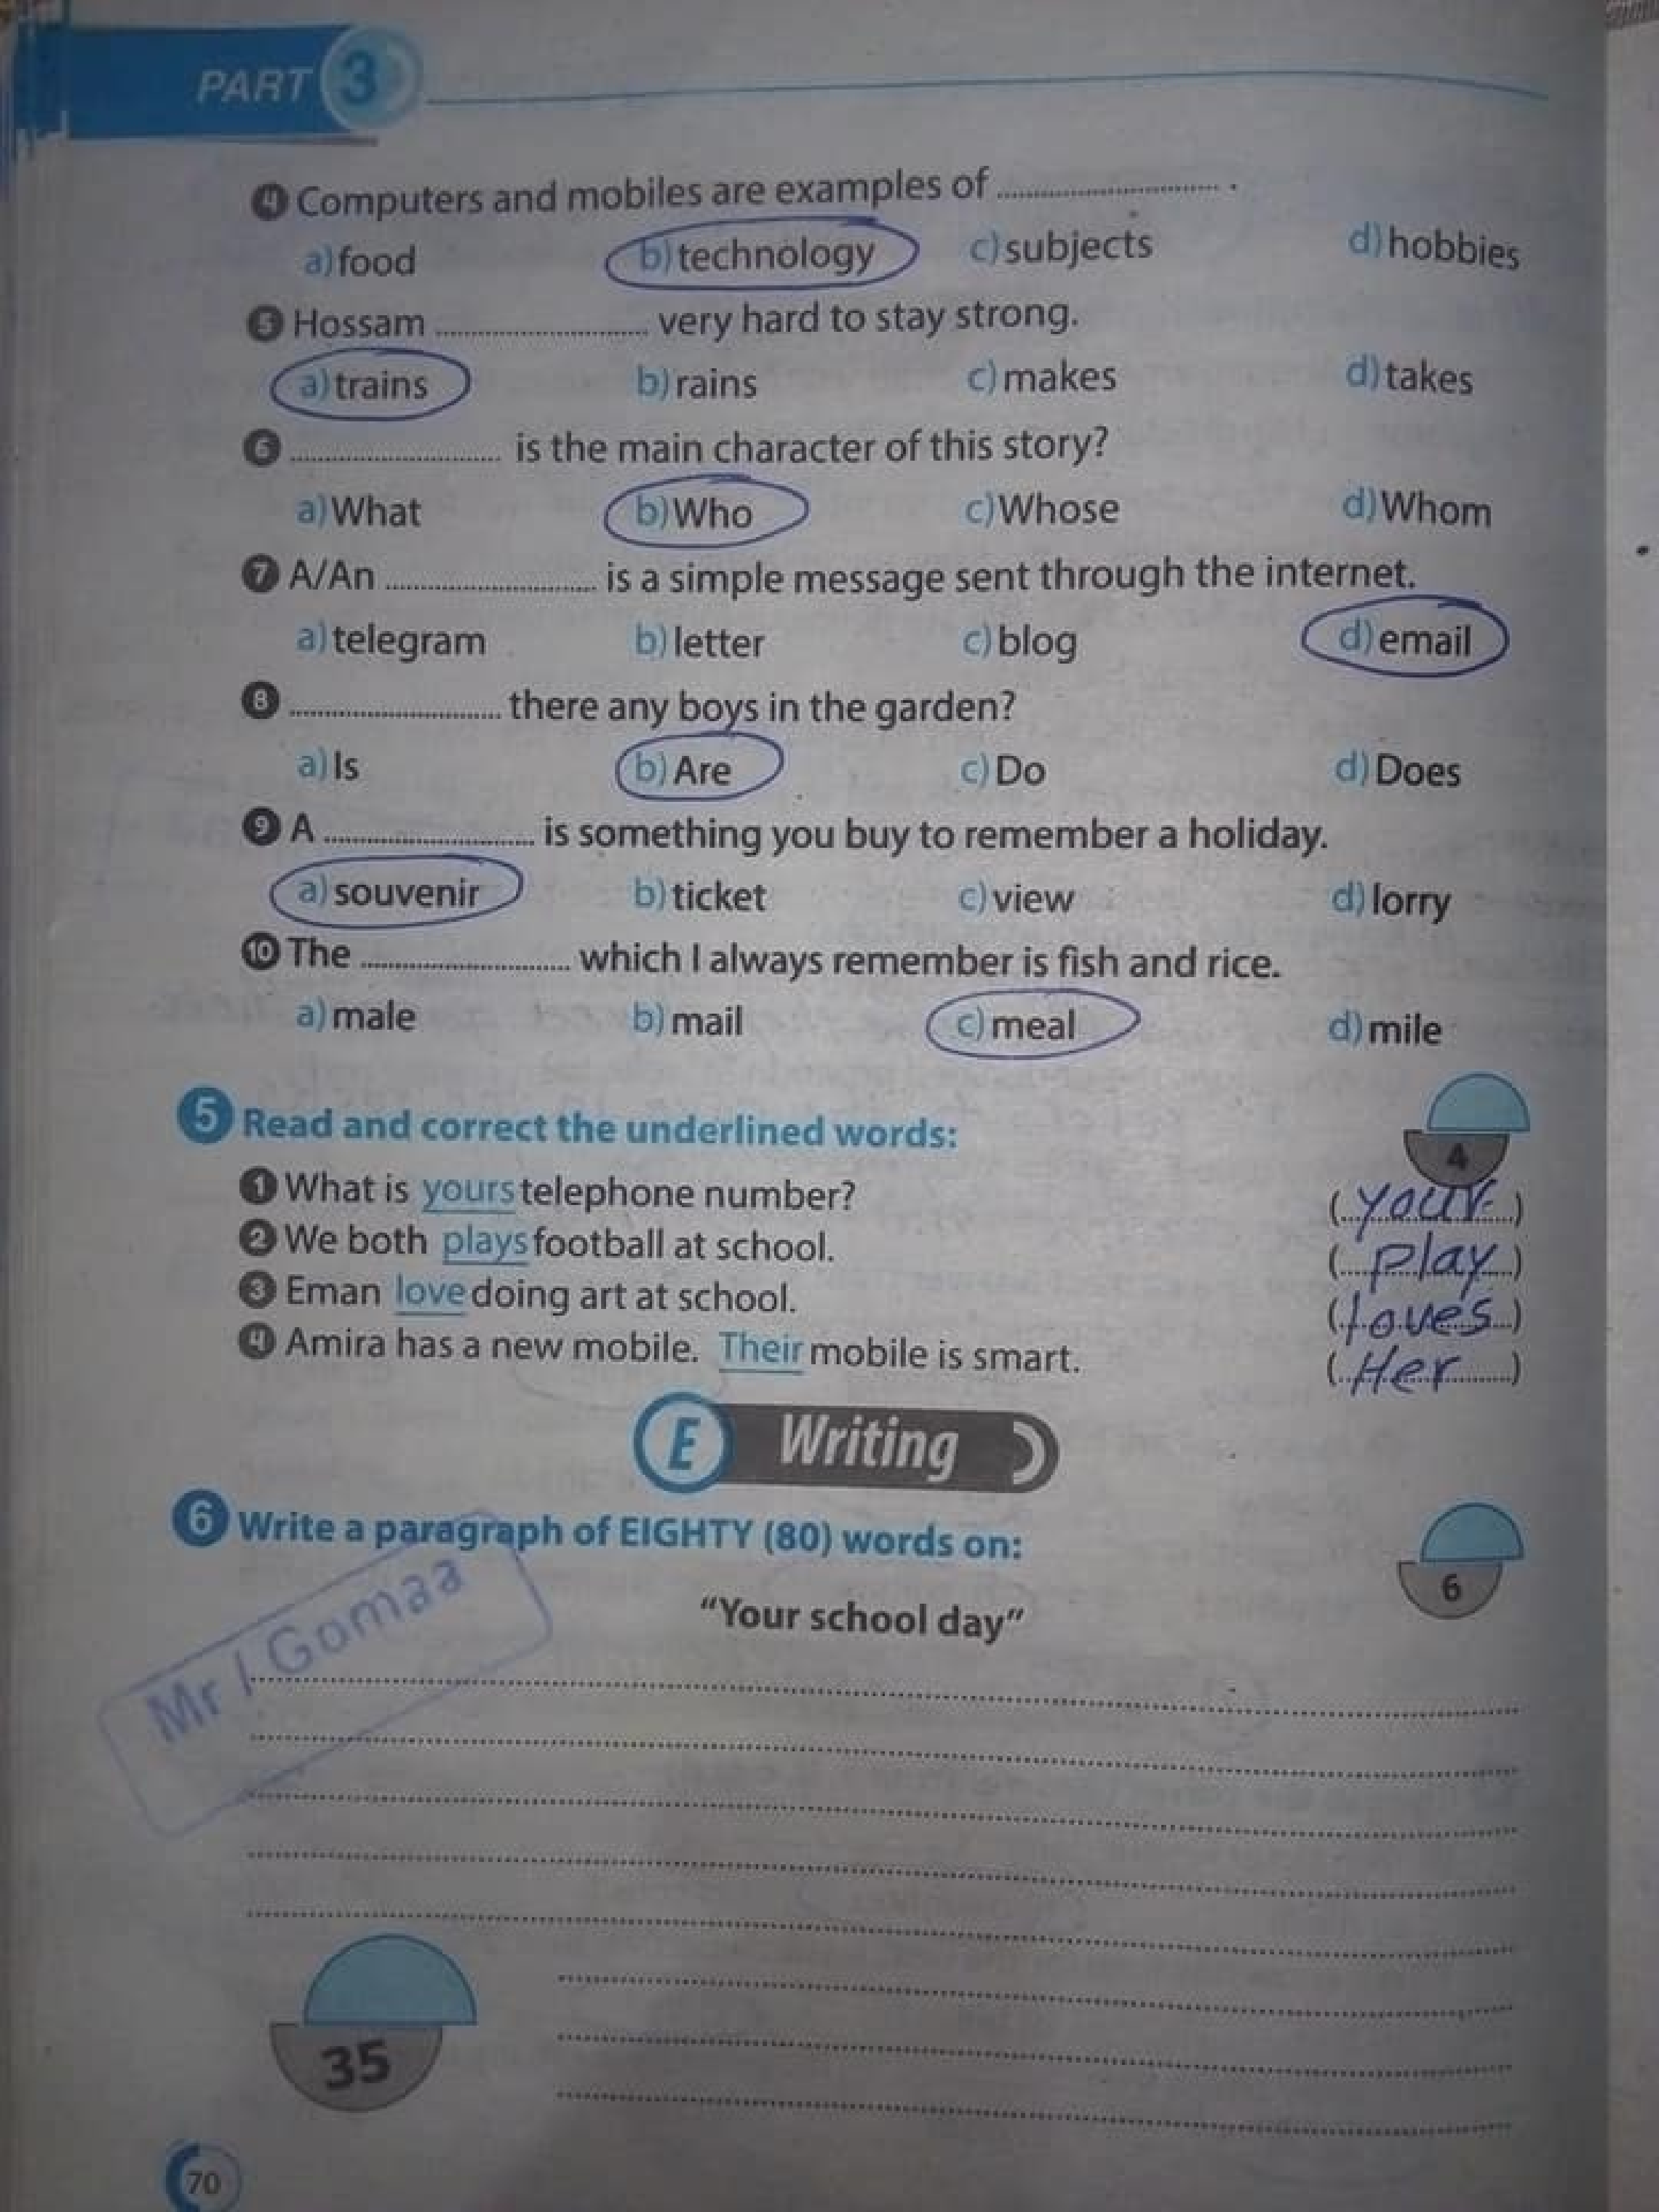 PART 3
4 Computers and mobiles are examples of .............................. .
a) food b) technology c) subjects d) hobbies
5 Hossam .............................. very hard to stay strong.
a) trains b) rains c) makes d) takes
6 .............................. is the main character of this story?
a) What b) Who c) Whose d) Whom
7 A/An .............................. is a simple message sent through the internet.
a) telegram b) letter c) blog d) email
8 .............................. there any boys in the garden?
a) Is b) Are c) Do d) Does
9 A .............................. is something you buy to remember a holiday.
a) souvenir b) ticket c) view d) lorry
10 The .............................. which I always remember is fish and rice.
a) male b) mail c) meal d) mile
5 Read and correct the underlined words:
4
1 What is yours telephone number? (your)
2 We both plays football at school. (play)
3 Eman love doing art at school. (loves)
4 Amira has a new mobile. Their mobile is smart. (Her)
E Writing
6 Write a paragraph of EIGHTY (80) words on:
6
"Your school day"
Mr / Gomaa
35
70